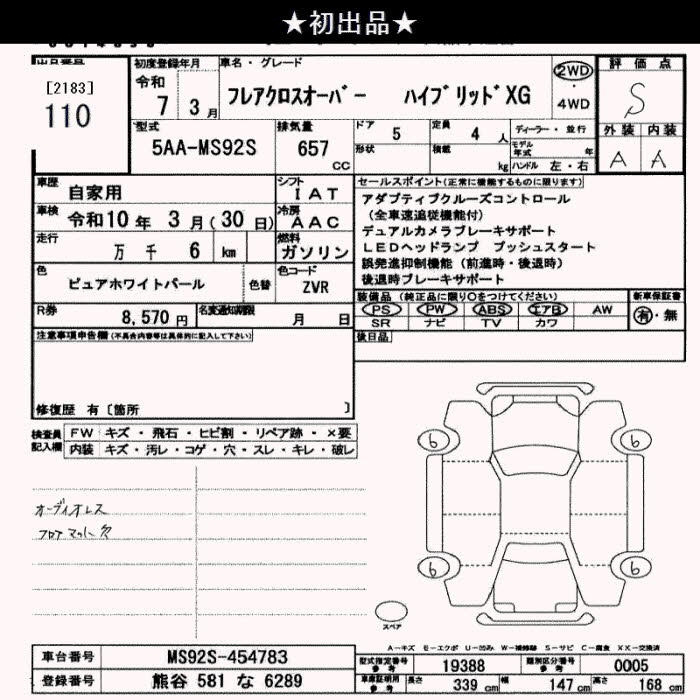 ★初出品★
[2183]
110
初度登録年月
令和
7 3月
車名・グレード
フレアクロスオーバー ハイブリッドXG
2WD
・
4WD
評価点
S
外装 内装
A A
型式
5AA-MS92S
排気量
657
CC
ドア 5
定員 4 人
形状
積載 kg
ディーラー・並行
モデル年式 年
ハンドル 左・右
車歴 自家用
シフト IAT
車検 令和10年 3月(30日)
冷房 AAC
走行 万 千 6 km
燃料 ガソリン
色 ピュアホワイトパール 色替
色コード ZVR
R券 8,570円
名変通知期限 月 日
セールスポイント(正常に機能するものに限ります)
アダプティブクルーズコントロール
(全車速追従機能付)
デュアルカメラブレーキサポート
LEDヘッドランプ プッシュスタート
誤発進抑制機能(前進時・後退時)
後退時ブレーキサポート
装備品(純正品に限り○をつけてください)
PS PW ABS エアB AW
SR ナビ TV カワ
新車保証書
有・無
後日品
注意事項申告欄(不具合内容等は具体的に記入して下さい)
修復歴 有〔箇所 〕
検査員記入欄
FW キズ・飛石・ヒビ割・リペア跡・×要
内装 キズ・汚レ・コゲ・穴・スレ・キレ・破レ
オーディオレス
フロアマット欠
6 6
6 6
スペア
A−キズ E−エクボ U−凹み W−補修跡 S−サビ C−腐食 XX−交換済
車台番号 MS92S-454783
登録番号 熊谷 581 な 6289
型式指定番号 参考 19388
類別区分番号 参考 0005
車庫証明用 参考
長さ 339 cm 幅 147 cm 高さ 168 cm